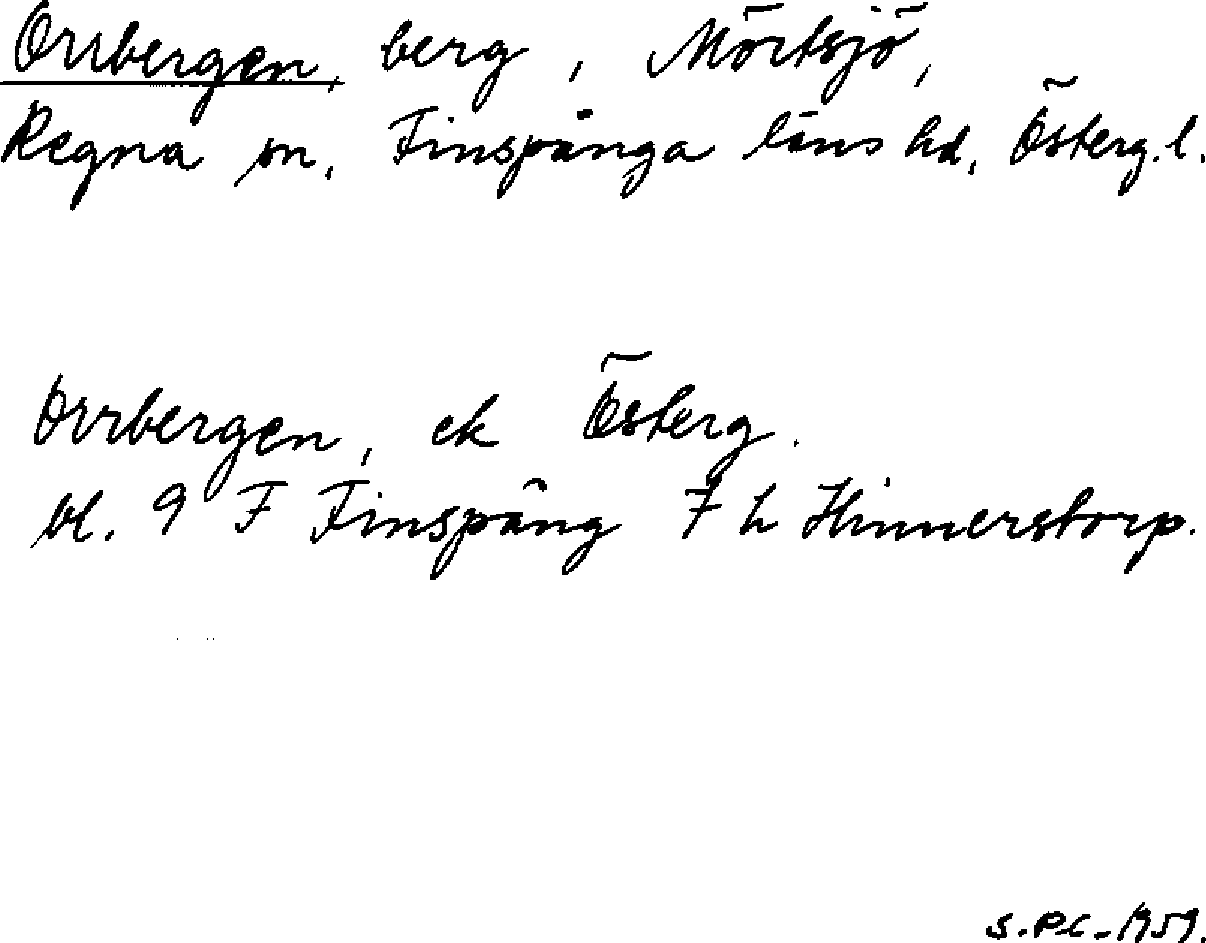 Orrbergen, berg, Mörtsjö,
Regna sn, Finspånga läns hd, Österg.l.
Orrbergen, ek Österg.
bl. 9 F Finspång 7 h Hinnerstorp.
S.PC-1959.